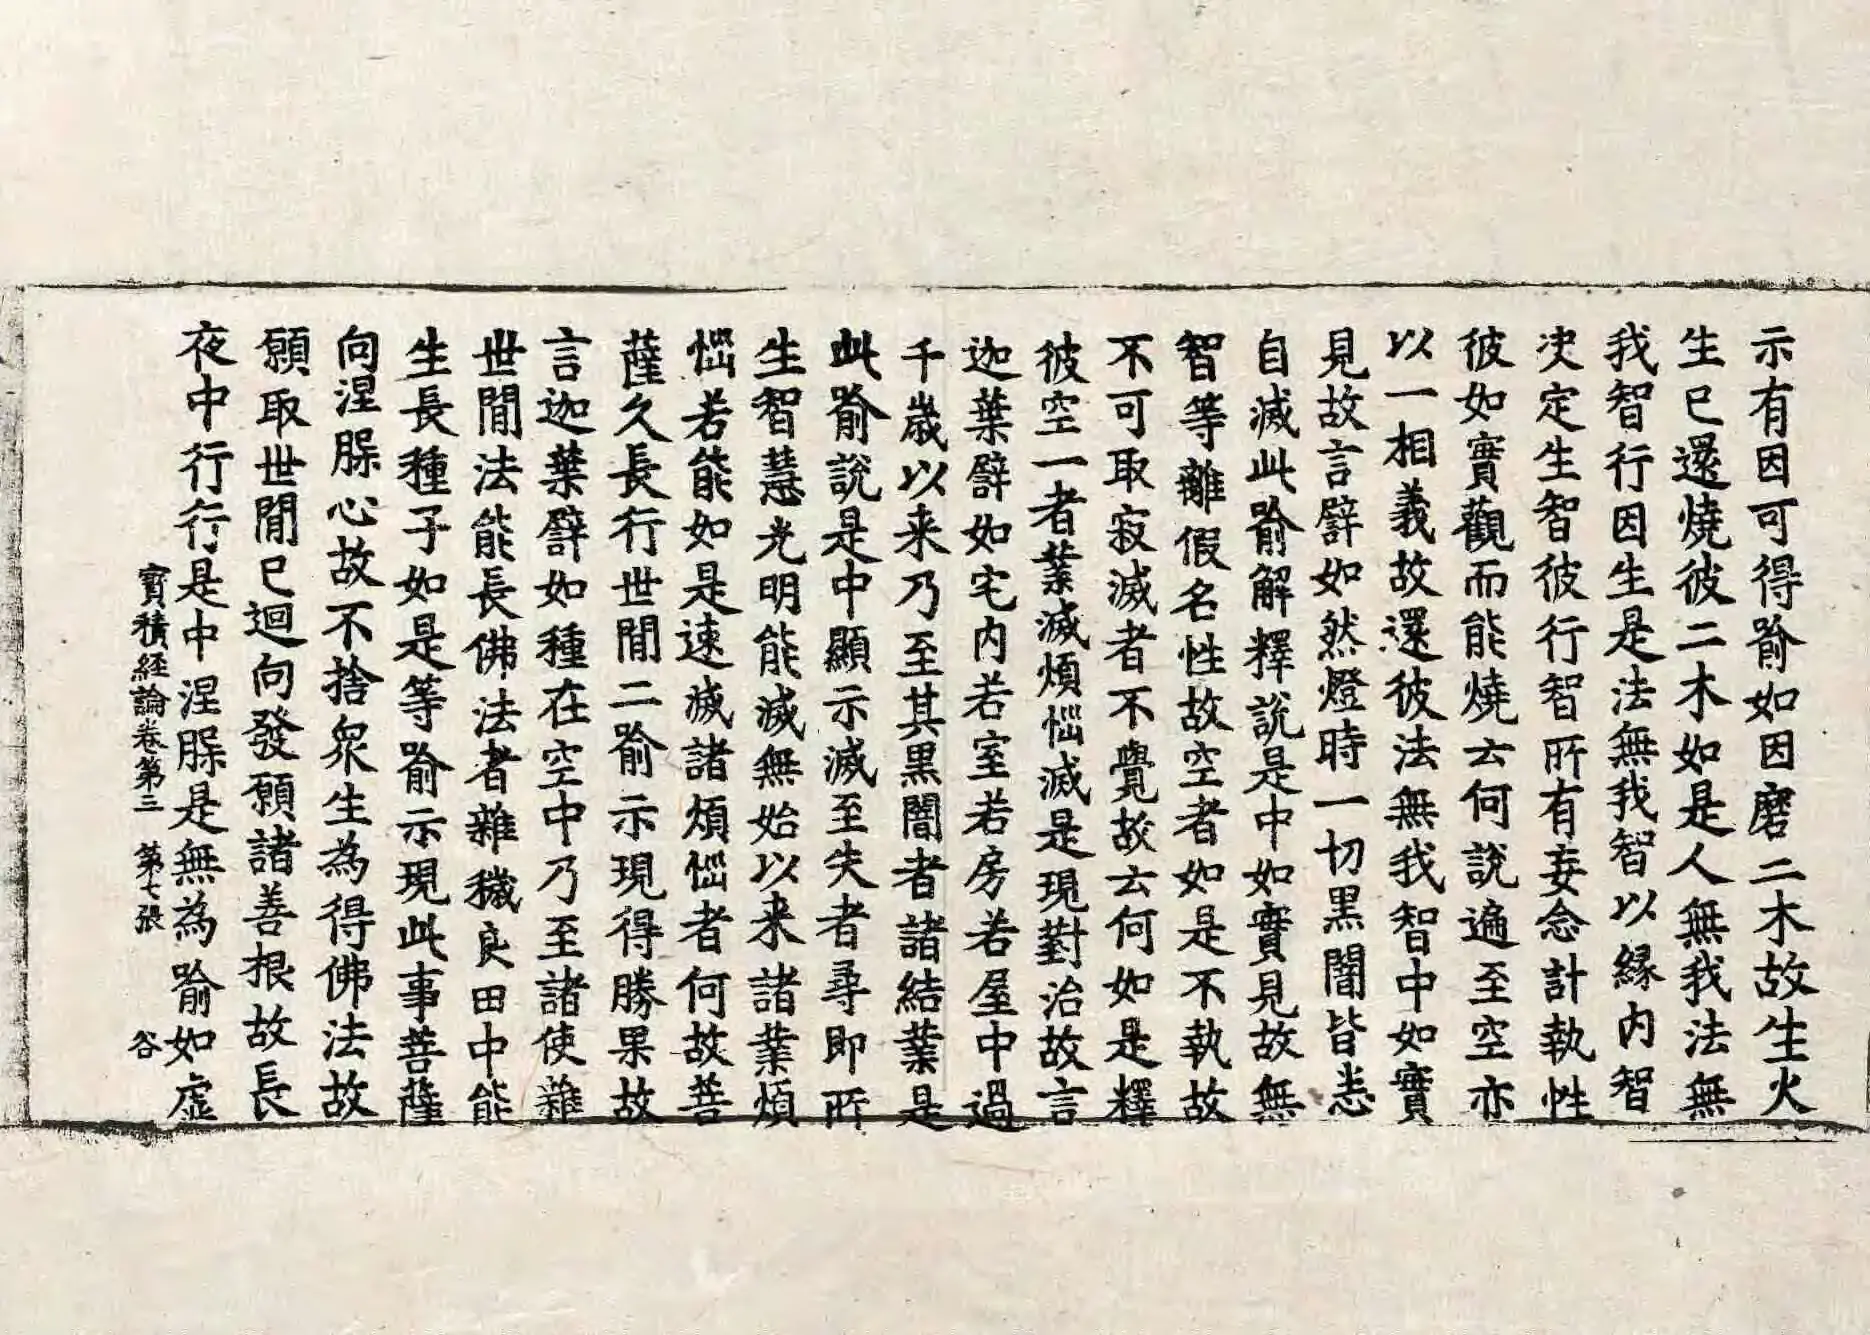 示有因可得喻如因磨二木故生火
生已還燒彼二木如是人無我法無
我智行因生是法無我智以緣內智
决定生智彼行智所有妄念計執性
彼如實觀而能燒云何說遍至空亦
以一相義故還彼法無我智中如實
見故言譬如然燈時一切黑闇皆悉
自滅此喻解釋說是中如實見故無
智等離假名性故空者如是不執故
不可取寂滅者不覺故云何如是釋
彼空一者業滅煩惱滅是現對治故言
迦葉譬如宅內若室若房若屋中過
千歲以来乃至其黑闇者諸結業是
此喻說是中顯示滅至失者尋即所
生智慧光明能滅無始以来諸業煩
惱若能如是速滅諸煩惱者何故菩
薩久長行世間二喻示現得勝果故
言迦葉譬如種在空中乃至諸使雜
世間法能長佛法者雜穢良田中能
生長種子如是等喻示現此事菩薩
向涅槃心故不捨衆生為得佛法故
願取世間已迴向發願諸善根故長
夜中行行是中涅槃是無為喻如虛
寶積經論卷第三 第七張 谷